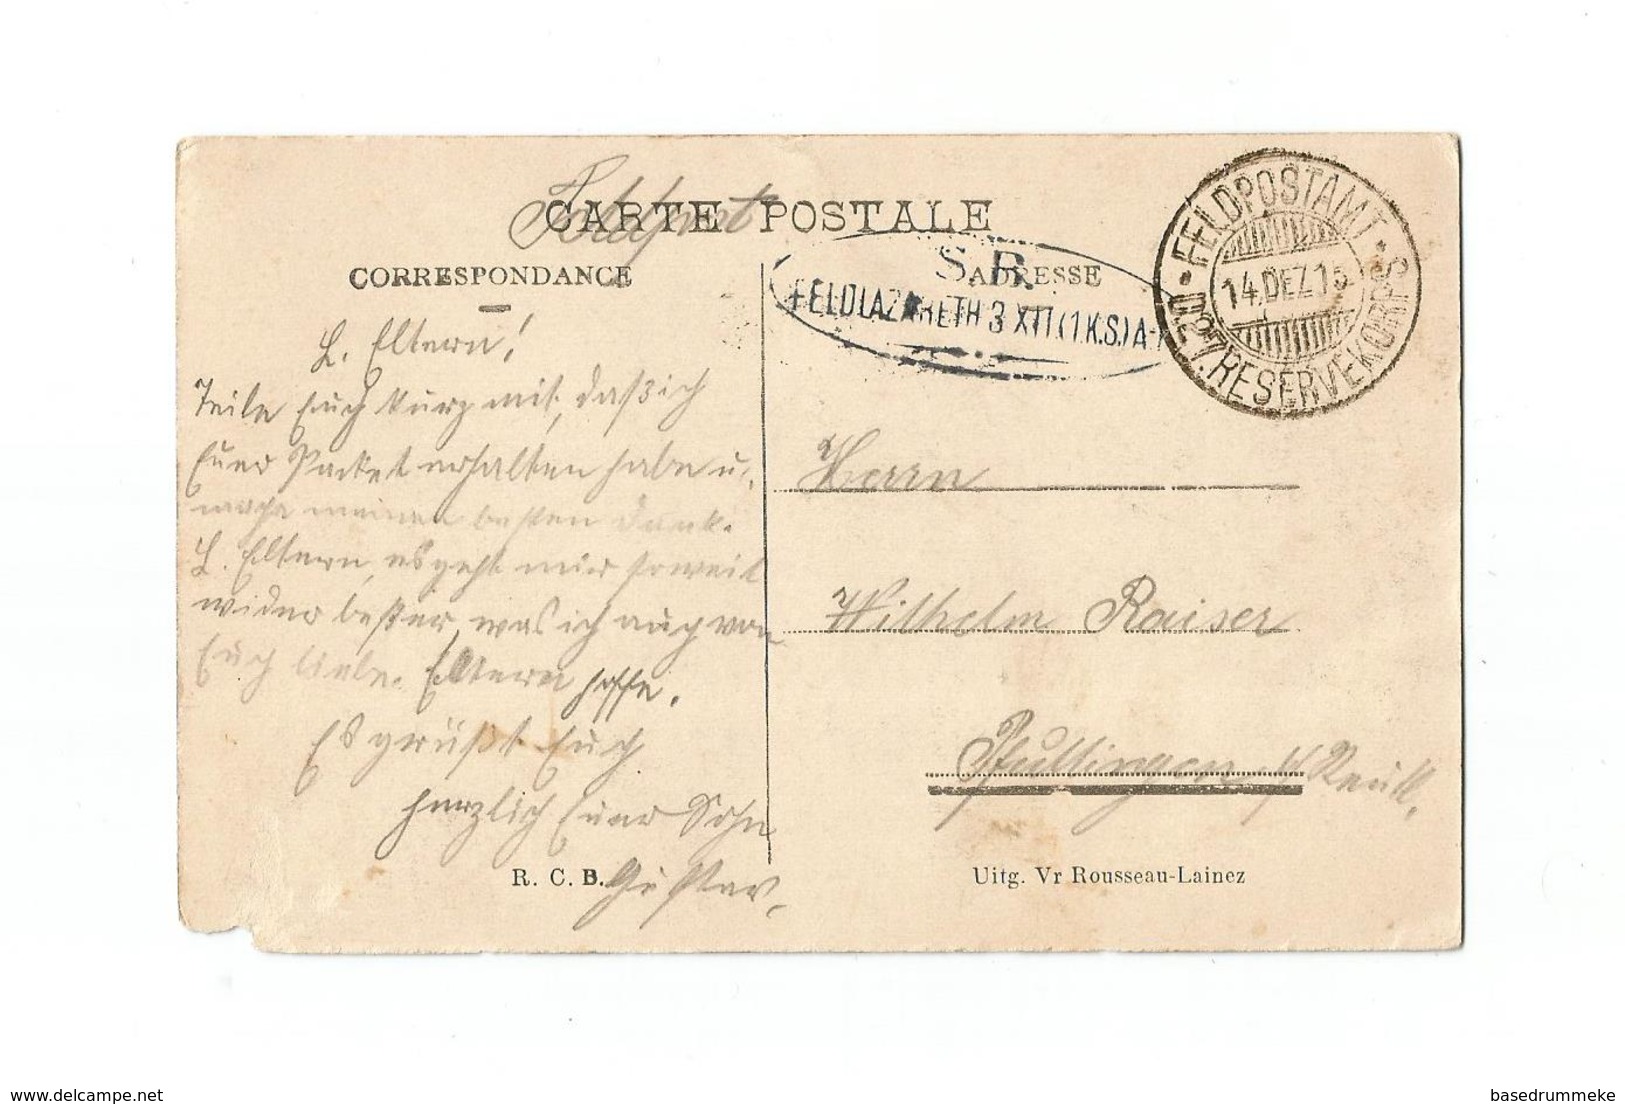 Feldpost
CARTE POSTALE
CORRESPONDANCE
ADRESSE
S.B.
FELDLAZARETH 3 XIII (1 K.S.) A-K
FELDPOSTAMT
14.DEZ.15
D. 27. RESERVEKORPS
L. Eltern!
Teile Euch kurz mit, daß ich
Euer Packet erhalten habe u.
meinen besten Dank.
L. Eltern, es geht mir soweit
wider besser, was ich auch von
Euch liebe Eltern hoffe.
Es grüßt Euch
herzlich Euer Sohn
Gustav.
Herrn
Wilhelm Raiser
Pfullingen b/ Reutl.
R. C. B.
Uitg. Vr Rousseau-Lainez
delcampe.net
basedrummeke